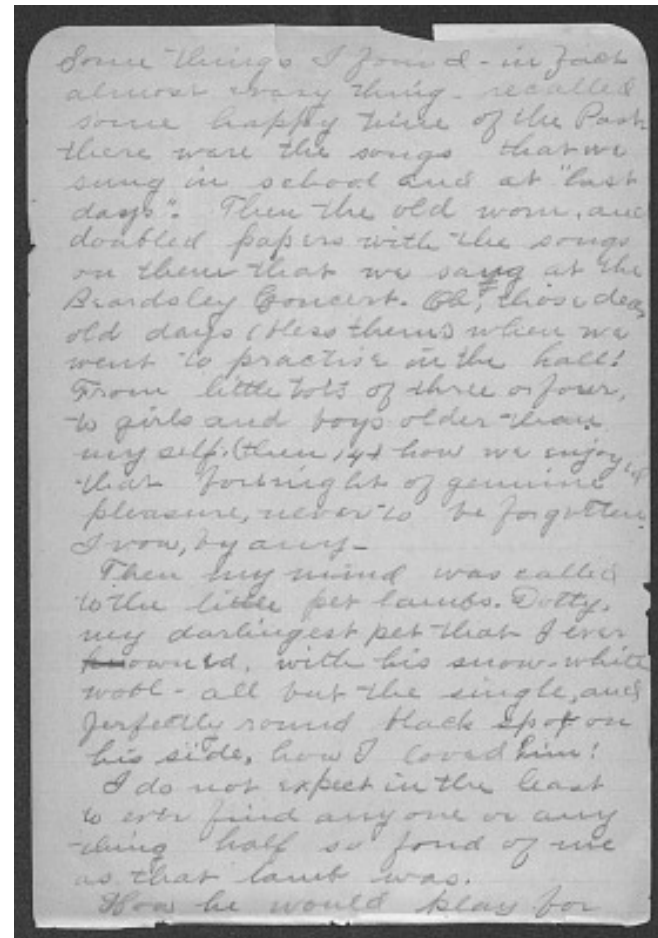 Some things I found - in fact
almost every thing - recalled
some happy time of the Past
there were the songs that we
sung in school and at "last
days". Then the old worn, and
doubled papers with the songs
on them that we sang at the
Beardsley Concert. Oh, those dear
old days (bless them) when we
went to practise in the hall!
From little tots of three or four,
to girls and boys older than
my self. (then 14) how we enjoyed
that fortnight of genuine
pleasure, never to be forgotten
I vow, by any -
Then my mind was called
to the little pet lambs. Dotty,
my darlingest pet that I ever
owned, with his snow-white
wool - all but the single, and
perfectly round black spot on
his side, how I loved him!
I do not expect in the least
to ever find any one or any
thing half so fond of me
as that lamb was.
How he would play for